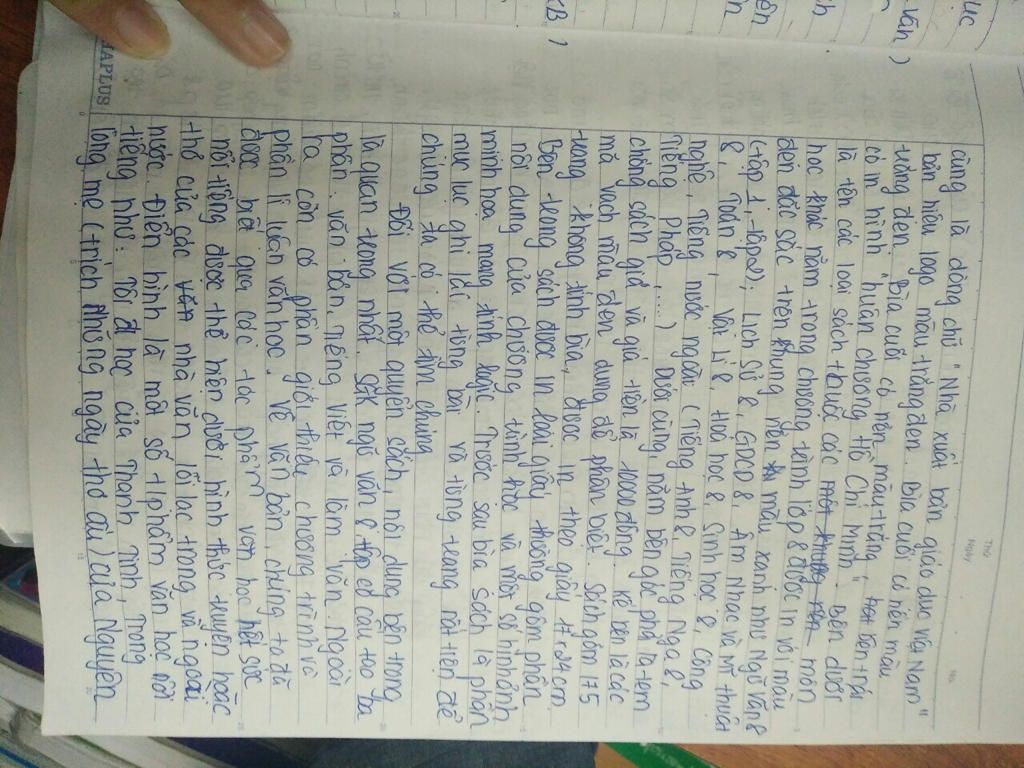 cùng là dòng chữ "Nhà xuất bản giáo dục việt Nam"
bản hiệu logo màu trắng đen. Bìa cuối có nền màu
trắng, bên trái
có in hình "huân chương Hồ Chí Minh". Bên dưới
là tên các loại sách thuộc các môn
học khác nằm trong chương trình lớp 8 được in với màu
đen đặc sắc trên khung nền màu xanh như Ngữ văn 8
(tập 1, tập 2); Lịch Sử 8, GDCD 8, Âm Nhạc và Mĩ thuật
8, Toán 8, Vật Lí 8, Hoá học 8, Sinh học 8, Công
nghệ, Tiếng nước ngoài (Tiếng Anh 8, Tiếng Nga 8,
Tiếng Pháp,...) Dưới cùng nằm bên góc phải là tem
chống sách giả và giá tiền là đồng. kế bên là các
mã vạch màu đen dùng để phân biệt. Sách gồm 175
trang không tính bìa, được in theo giấy 17x24cm
Bên trong sách được in loại giấy thường gồm phần
nội dung của chương trình học và một số hình ảnh
minh hoạ mang tính logic. Trước sau bìa sách là phần
mục lục ghi lại từng bài và từng trang rất tiện để
chúng ta có thể tìm chúng
Đối với một quyển sách, nội dung bên trong
là quan trọng nhất. SGK ngữ văn 8, có cấu tạo ba
phần: văn bản, Tiếng việt và làm văn. Ngoài
ra còn có phần giới thiệu chương trình và
phần lí luận văn học. Về văn bản, chúng ta đã
được biết qua các tác phẩm văn học hết sức
nổi tiếng được thể hiện dưới hình thức truyện hoặc
thơ của các nhà văn lỗi lạc trong và ngoài
nước. Điển hình là một số tác phẩm văn học nổi
tiếng như: Tôi đi học của Thanh Tịnh, Trong
lòng mẹ (trích Những ngày thơ ấu) của Nguyên
THAPLUS
Thứ
Ngày